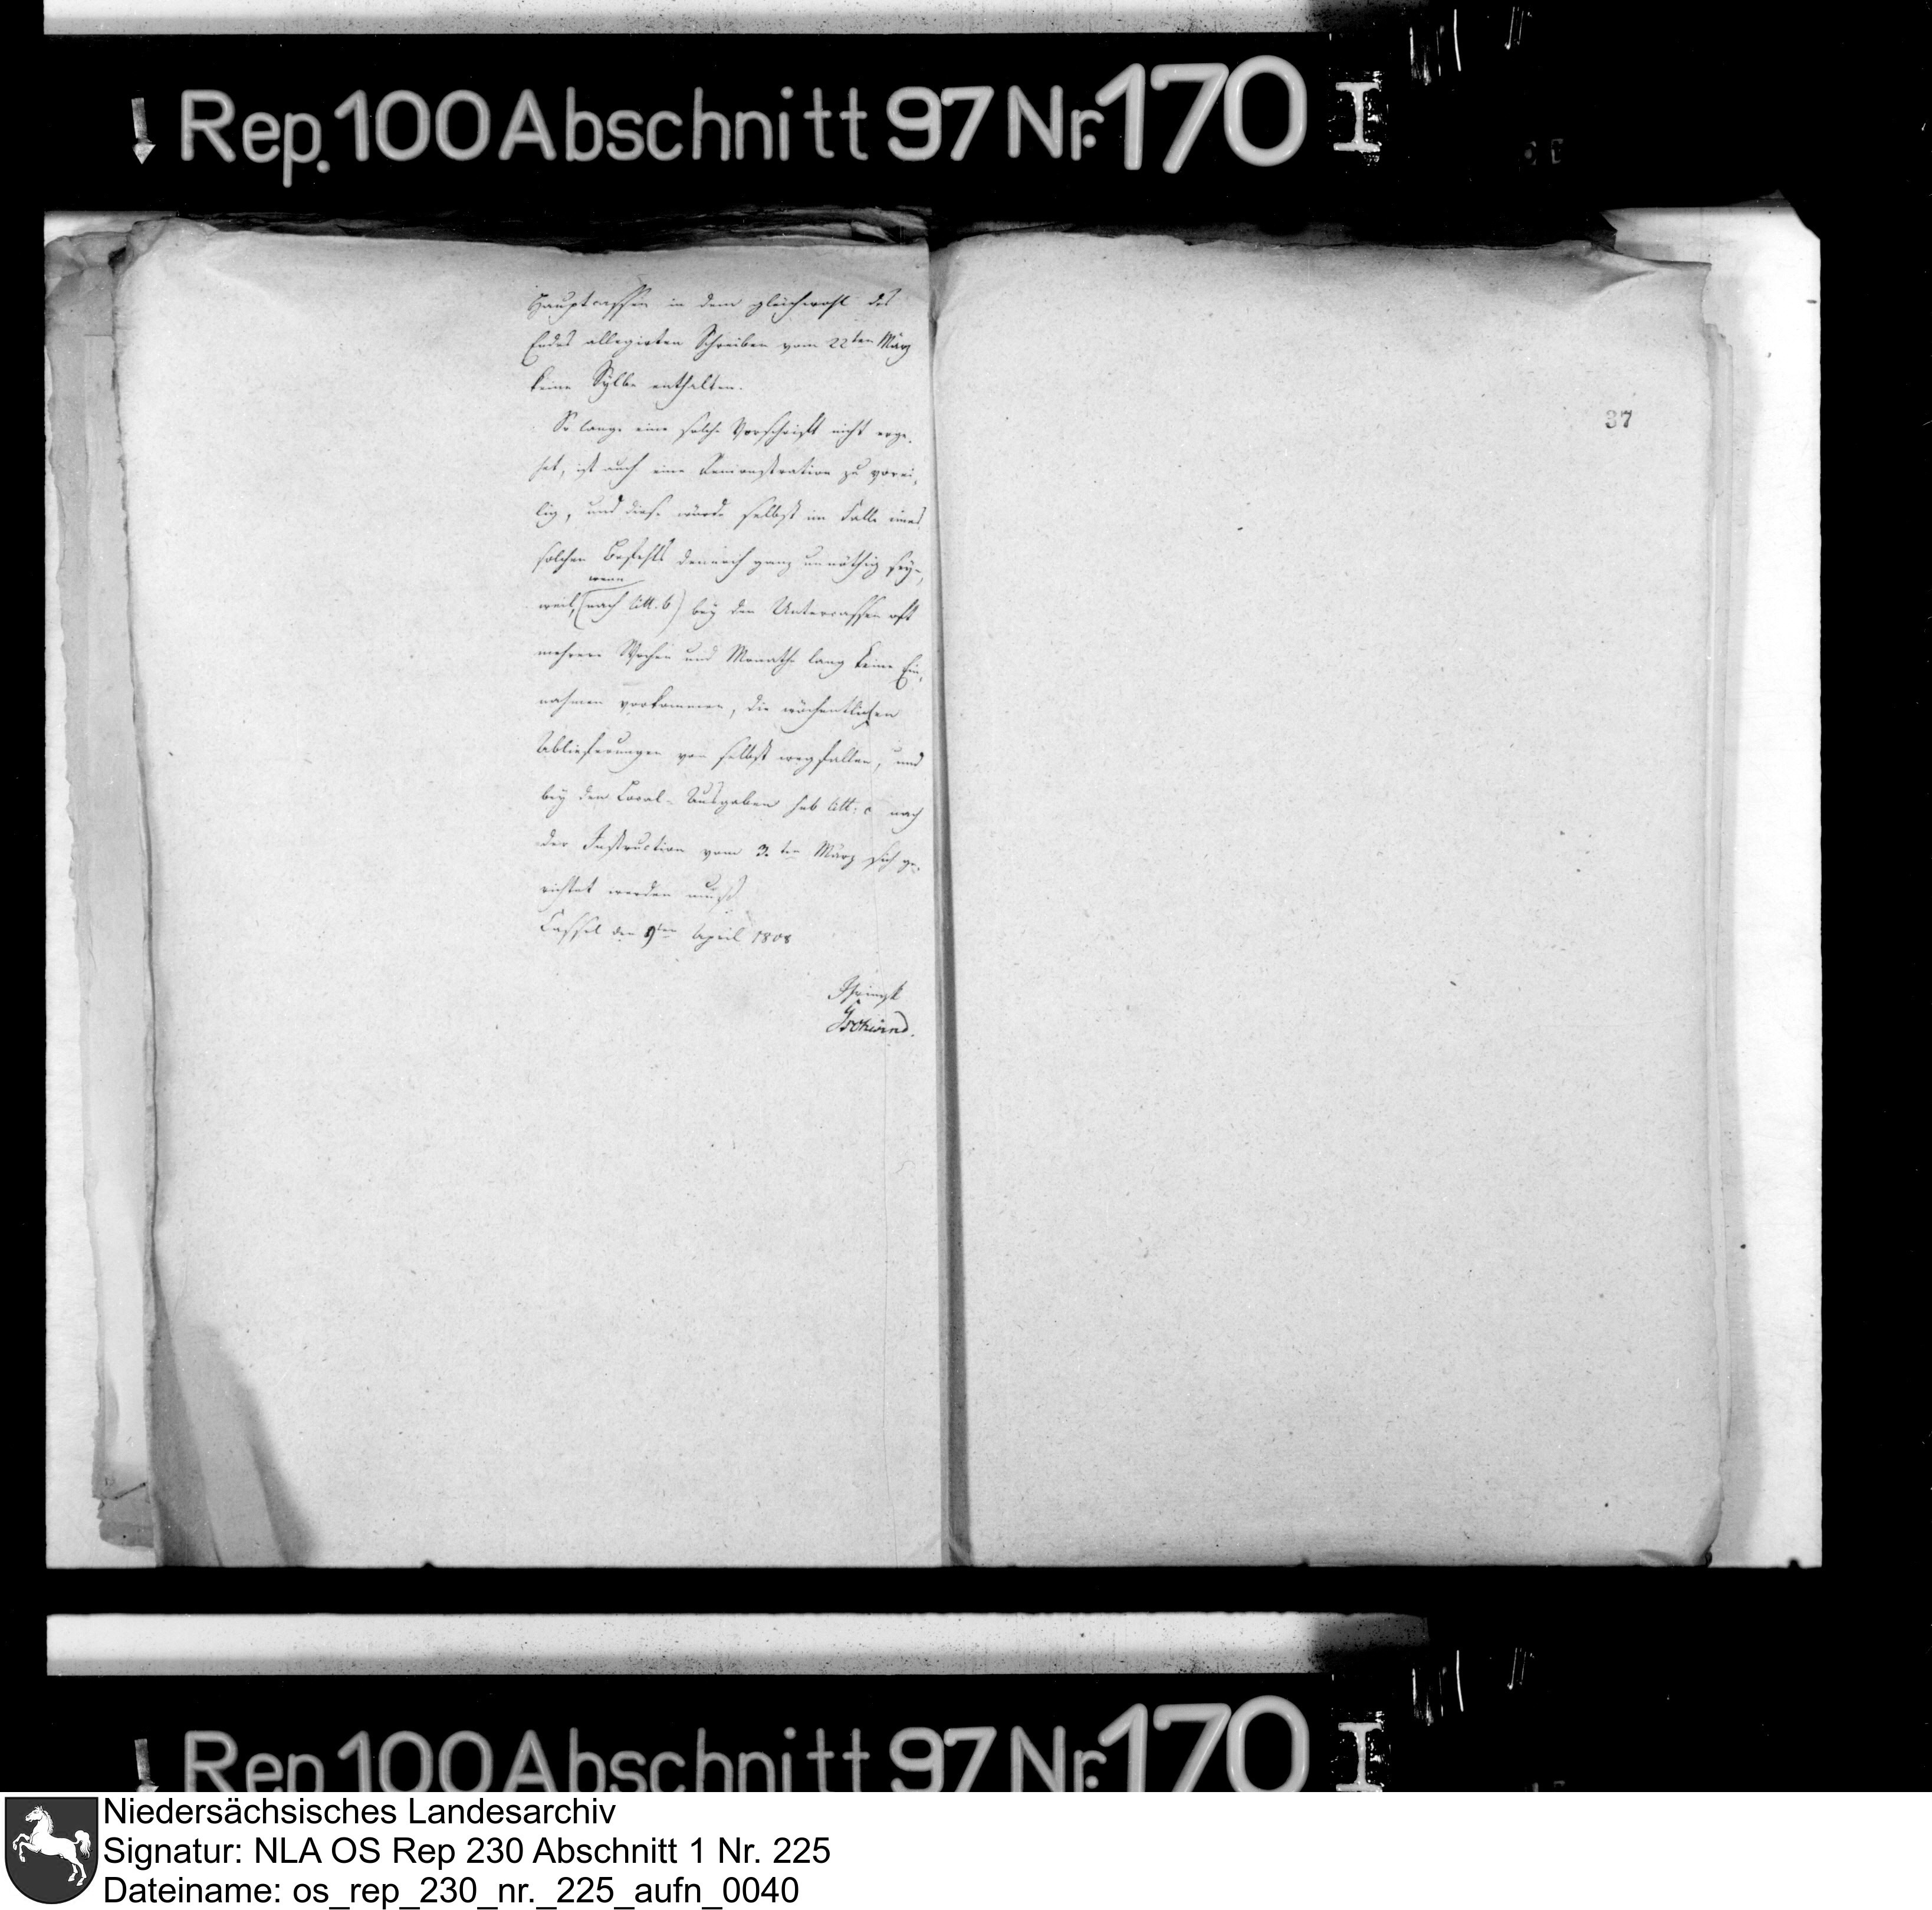 Rep. 100 Abschnitt 97 Nr. 170 I
Hauptcassen in dem gleichwohl des
Endes allegirten Schreiben vom 22ten März
keine Sylbe enthalten.
So lange eine solche Vorschrift nicht erge-
het, ist auch eine Remonstration zu vorei-
lig, und diese würde selbst im Falle eines
solchen Befehls dennoch ganz unnöthig sey-
wenn
weil, (nach litt. b) bey den Untercassen oft
mehrere Wochen und Monathe lang keine Ein-
nahmen vorkommen, die wöchentlichen
Ablieferungen von selbst wegfallen, und
bey den Local-Ausgaben sub litt. c nach
der Instruction vom 3. ten März sich ge-
richtet werden muß
Cassel den 9ten April 1808
37
Rep. 100 Abschnitt 97 Nr. 170 I
Niedersächsisches Landesarchiv
Signatur: NLA OS Rep 230 Abschnitt 1 Nr. 225
Dateiname: os_rep_230_nr._225_aufn_0040